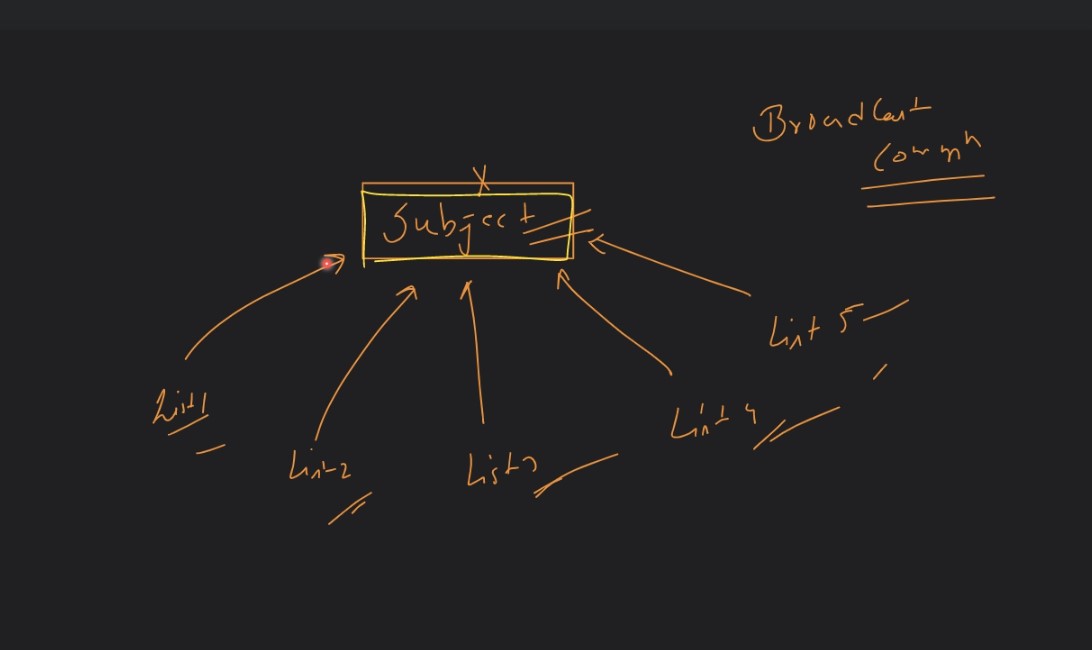 BroadCast
Commn
Subject
List 5
List1
List 4
List2
List3